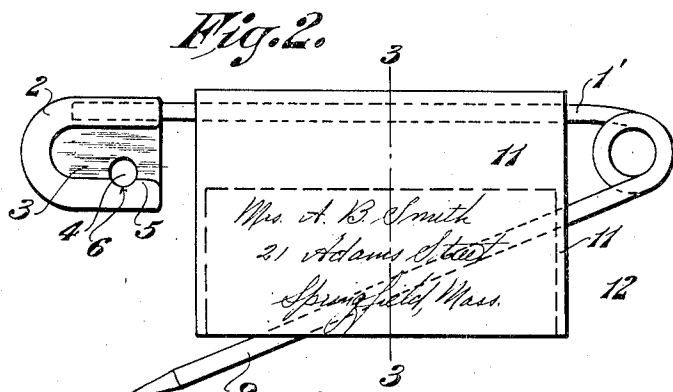 Fig. 2.
3
2
1'
11
3
4
6
5
Mrs. A. B. Smith
21 Adams Street
Springfield, Mass.
11
12
3